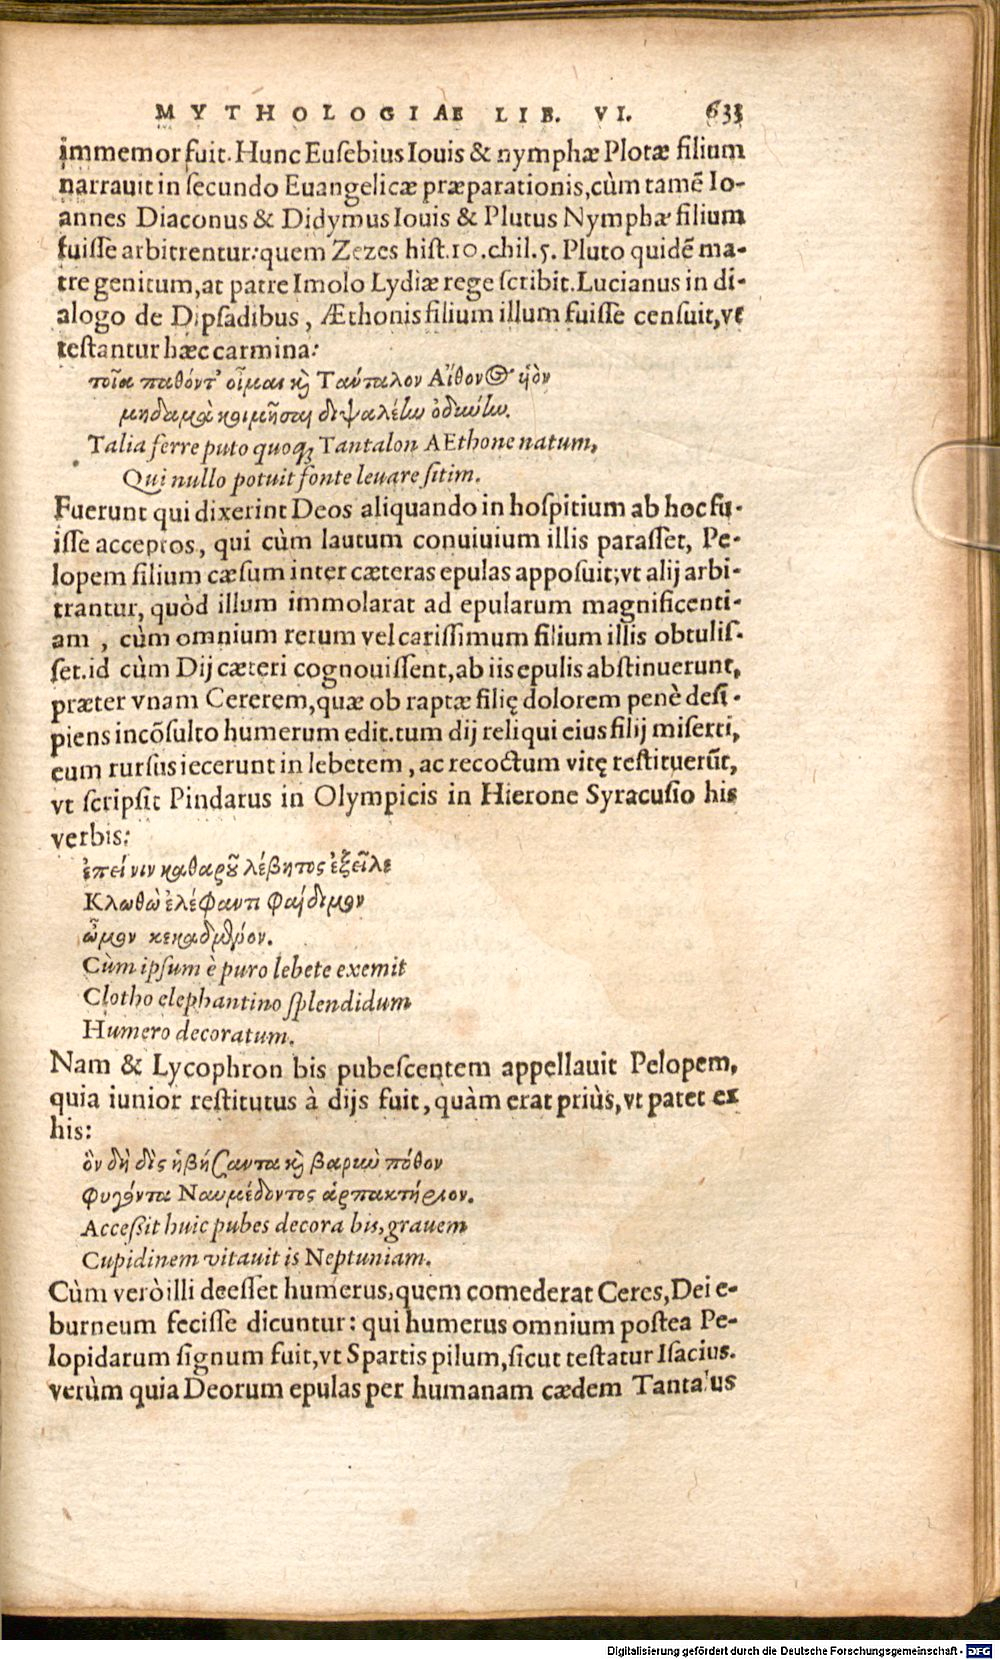 MYTHOLOGIAE LIB. VI. 633
immemor fuit. Hunc Eusebius Iouis & nymphæ Plotæ filium
narrauit in secundo Euangelicæ præparationis, cùm tamẽ Io-
annes Diaconus & Didymus Iouis & Plutus Nymphæ filium
fuisse arbitrentur: quem Zezes hist. 10. chil. 5. Pluto quidẽ ma-
tre genitum, at patre Imolo Lydiæ rege scribit. Lucianus in di-
alogo de Dipsadibus, Æthonis filium illum fuisse censuit, vt
testantur hæc carmina:
ποῖα παθόντ' οἶμαι καὶ Ταύταλον Αἴθονος ὑὸν
μηδαμὰ κοιμῆσαι διψαλέίω ὀδύνίω.
Talia ferre puto quoq; Tantalon AEthone natum,
Qui nullo potuit fonte leuare sitim.
Fuerunt qui dixerint Deos aliquando in hospitium ab hoc fu-
isse acceptos, qui cùm lautum conuiuium illis parasset, Pe-
lopem filium cæsum inter cæteras epulas apposuit; vt alij arbi-
trantur, quòd illum immolarat ad epularum magnificenti-
am, cùm omnium rerum vel carissimum filium illis obtulis-
set. id cùm Dij cæteri cognouissent, ab iis epulis abstinuerunt,
præter vnam Cererem, quæ ob raptæ filię dolorem penè desi-
piens incõsulto humerum edit. tum dij reliqui eius filij miserti,
eum rursus iecerunt in lebetem, ac recoctum vitę restituerũt,
vt scripsit Pindarus in Olympicis in Hierone Syracusio his
verbis:
ἐπεί νιν καθαροῦ λέβητος ἐξεῖλε
Κλωθὼ ἐλέφαντι φαίδιμον
ὦμον κεκαδμένον.
Cùm ipsum è puro lebete exemit
Clotho elephantino splendidum
Humero decoratum.
Nam & Lycophron bis pubescentem appellauit Pelopem,
quia iunior restitutus à dijs fuit, quàm erat priùs, vt patet ex
his:
ὃν δὴ δὶς ἡβήσαντα καὶ βαρὺν πόθον
φυγόντα Ναυμέδοντος ἁρπακτήριον.
Accessit huic pubes decora bis, grauem
Cupidinem vitauit is Neptuniam.
Cùm verò illi deesset humerus, quem comederat Ceres, Dei e-
burneum fecisse dicuntur: qui humerus omnium postea Pe-
lopidarum signum fuit, vt Spartis pilum, sicut testatur Isacius.
verùm quia Deorum epulas per humanam cædem Tantalus
Digitalisierung gefördert durch die Deutsche Forschungsgemeinschaft - DFG